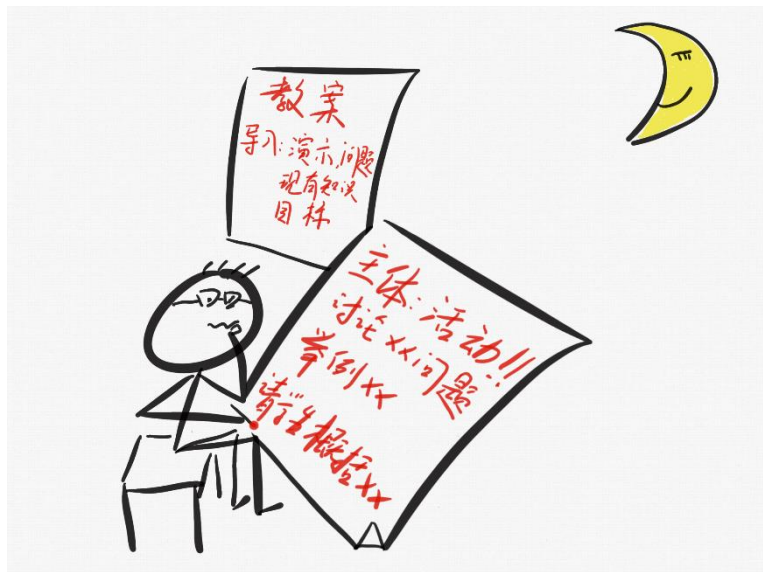 教案
导入:演示,问题
现有知识
目标
主体:活动!!!
讨论xx问题
举例xx
请学生概括xx